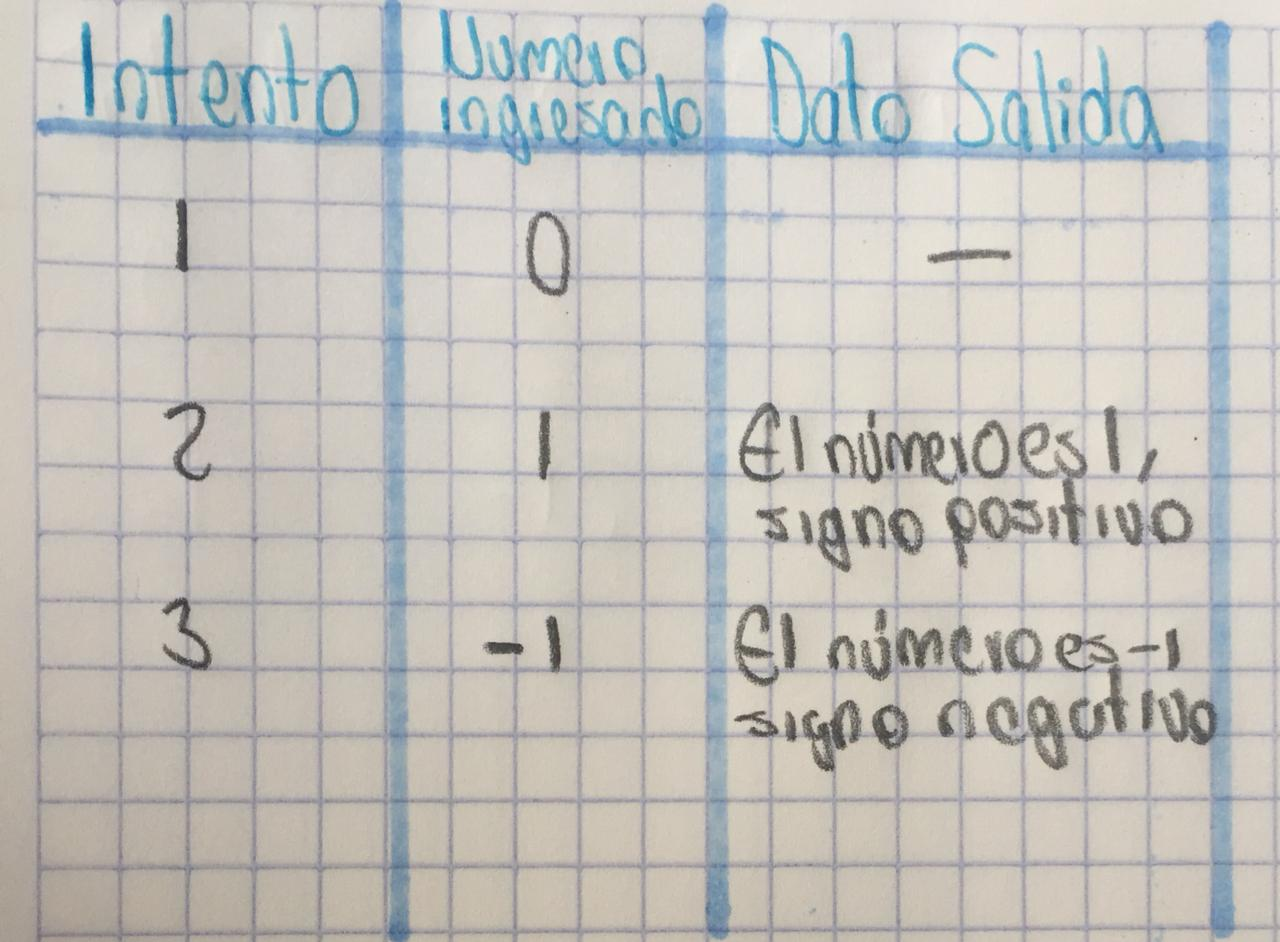 Intento Numero ingresado Dato Salida
1 0 —
2 1 El número es 1,
signo positivo
3 -1 El número es -1
signo negativo